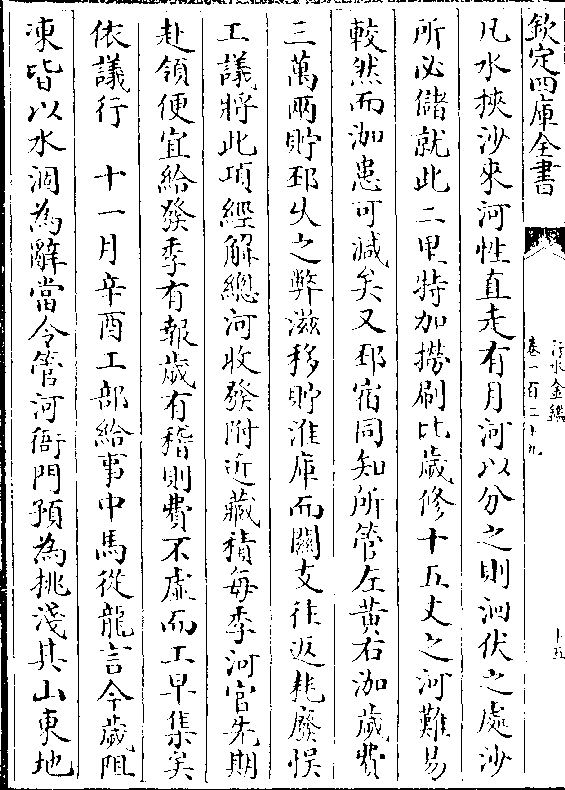 欽定四庫全書
行水金鑑
卷一百二十九
十五
凡水挾沙來河性直走有月河以分之則洄伏之處沙
所必儲就此二里特加撈刷比歲修十五丈之河難易
較然而泇患可減矣又邳宿同知所管左黃右泇歲費
三萬兩貯邳久之弊滋移貯淮庫而關支往返耗廢悞
工議將此項經解總河收發附近藏積每季河官先期
赴領便宜給發季有報歲有稽則費不虛而工早集矣
依議行　十一月辛酉工部給事中馬從龍言今歲阻
凍皆以水涸為辭當令管河衙門預為挑淺其山東地